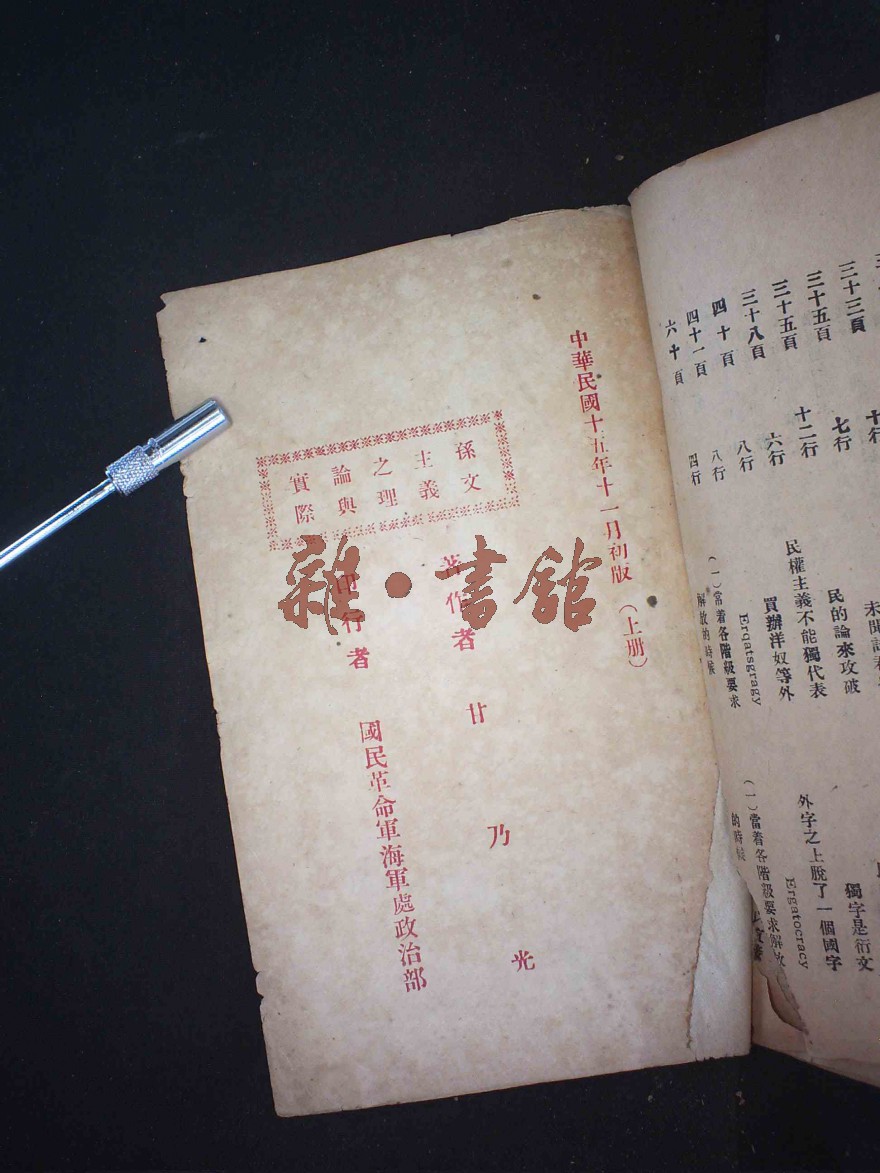 三十三頁 七行 民的論來攻破
三十五頁 十二行 民權主義不能獨代表 獨字是衍文
三十五頁 六行 買辦洋奴等外 外字之上脫了一個國字
三十八頁 八行 Ergatsgragy Ergatocracy
四十頁 八行 （一）常着各階級要求解放的時候 （一）當着各階級要求解放的時候
四十一頁 四行
六十頁
中華民國十五年十一月初版 （上册）
孫文主義之理論與實際
著作者 甘乃光
印行者 國民革命軍海軍處政治部
雜·書館